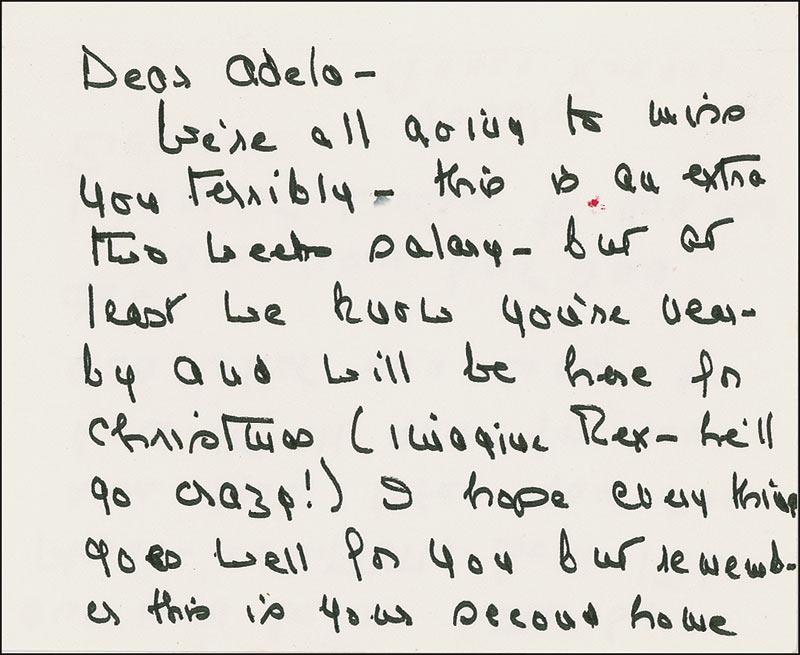 Dear Adela-
We're all going to miss
you terribly - this is an extra
two weeks salary - but at
least we know you're near-
by and will be here for
Christmas (imagine Rex - he'll
go crazy!) I hope every thing
goes well for you but rememb-
er this is your second home